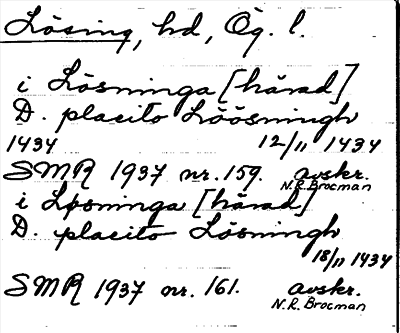 Lösing, hd, Ög. l.
i Lösninga [härad]
D. placito Löösningh
1434 12/11 1434
SMR 1937 nr. 159. avskr.
N.R. Brocman
i Løsninga [härad]
D. placito Lösningh
18/11 1434
SMR 1937 nr. 161. avskr.
N.R. Brocman